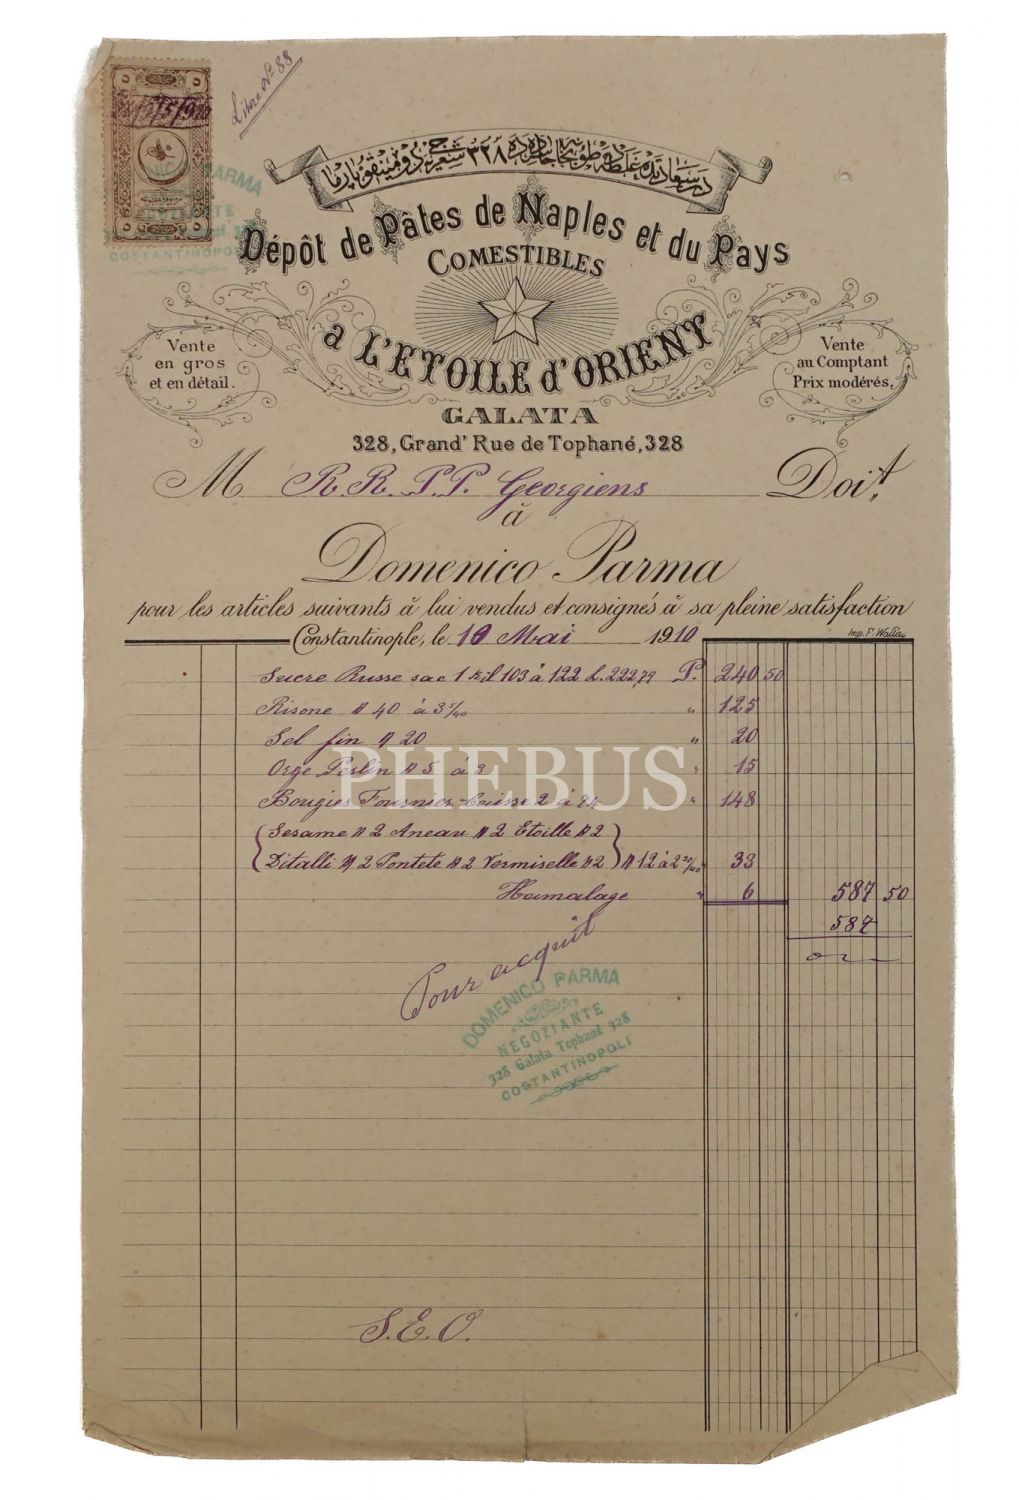 Libre Nº 88
در سعادتده غلطه ده طوپخانه جاده سنده ٣٢٨ شعریه جی دومینیقو پارما
Dépôt de Pâtes de Naples et du Pays
COMESTIBLES
a L'ETOILE d'ORIENT
Vente
en gros
et en détail.
Vente
au Comptant
Prix modérés.
GALATA
328, Grand' Rue de Tophané, 328
M R. R. P. P. Georgiens Doit
à
Domenico Parma
pour les articles suivants à lui vendus et consignés à sa pleine satisfaction
Constantinople, le 10 Mai 1910
Imp. F. Walla
Sucre Russe sac 1 Kil 103 à 122 L. 222,79 P. 240 50
Risone # 40 à 3 5/40 " 125
Sel fin # 20 " 20
Orge Perlin # 5 à 3 " 15
Bougies Fournier caisse 2 à 74 " 148
Sesame # 2 Aneau # 2 Etoille # 2
Ditalli # 2 Pontete # 2 Vermiselle # 2 # 12 à 2 30/40 " 33
Hamalage " 6 587 50
587
Pour acquit
DOMENICO PARMA
NEGOZIANTE
328 Galata Tophané 328
COSTANTINOPOLI
S. E. O.
PHEBUS